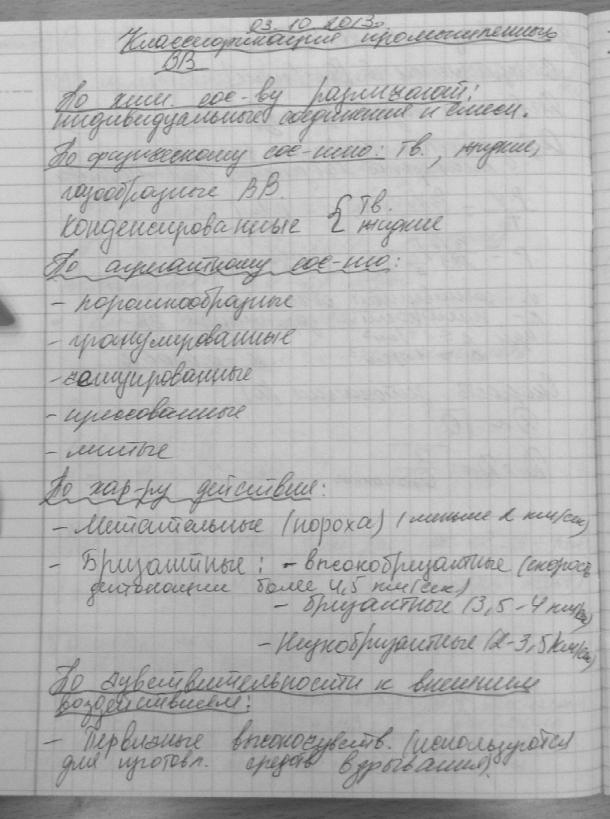 03.10.2013г.
Классификация промышленных
ВВ
По хим. сос-ву различают:
индивидуальные соединения и смеси.
По физическому сос-нию: тв., жидкие,
газообразные ВВ.
Конденсированные { тв.
жидкие
По агрегатному сос-ию:
- порошкообразные
- гранулированные
- чешуированные
- прессованные
- литые
По хар-ру действия:
- Метательные (пороха) (меньше 2 км/сек)
- Бризантные: - высокобризантные (скорость
детонации более 4,5 км/сек)
- бризантные (3,5-4 км/сек)
- Низкобризантные (2-3,5 км/сек)
По чувствительности к внешним
воздействиям:
- Первичные высокочувств. (используются
для изготовл. средств взрывания).